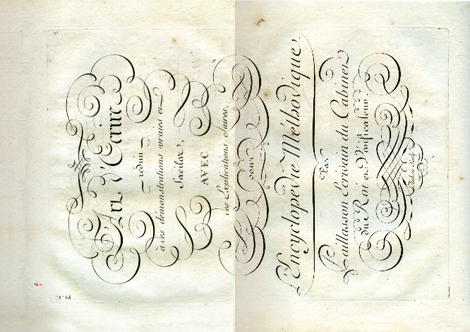 L'Art d'Ecrire
réduit
à des démonstrations vraies et
faciles,
AVEC
des Explications claires,
pour
l'Encyclopédie Méthodique,
Par
Paillasson Ecrivain du Cabinet
du Roi et Vérificateur